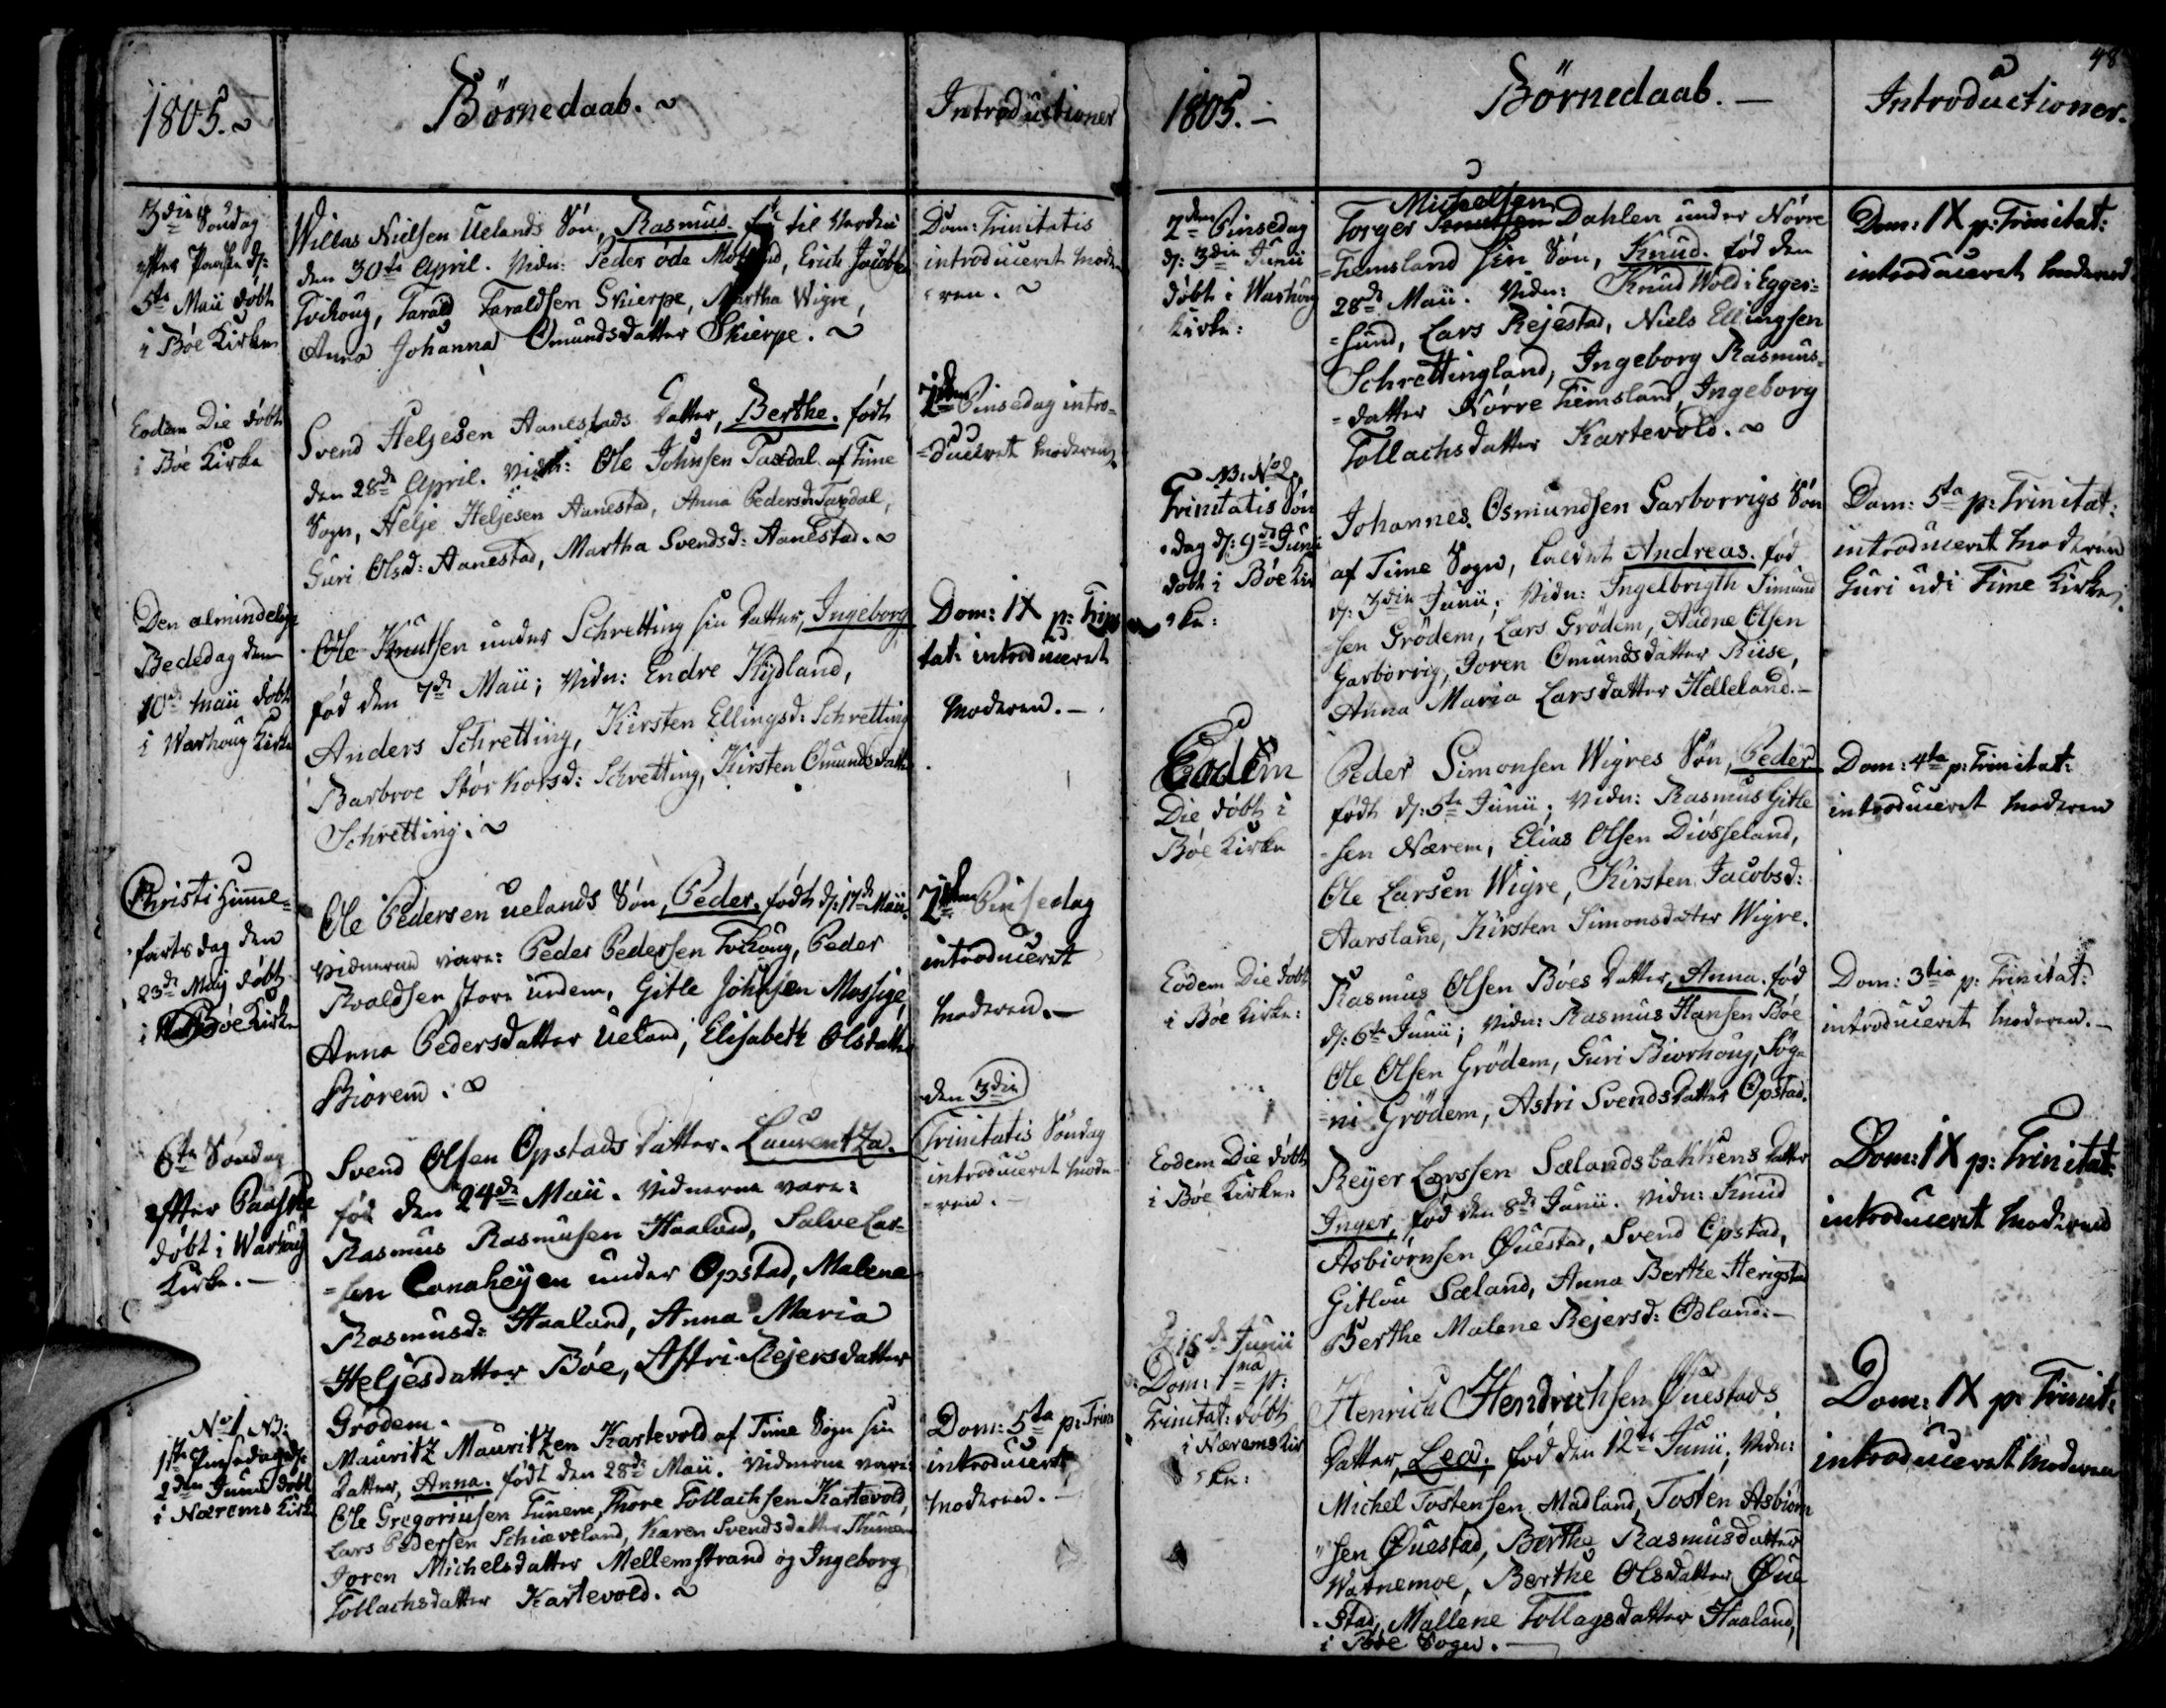 1805.
Börnedaab.
Introductioner
3die Søndag
efter Paaske d:
5te Maii døbt
i Bøe Kirke
Willas Nielsen Uelands Søn, Rasmus. til Verden
den 30te April. Vidn: Peder öde Erich Jacobs
Tvihoug, Tarald Taraldsen Skierpe, Martha Wigre,
Anna Johanna Omundsdatter Skierpe.
Dom: Trinitatis
introduceret Mode-
ren.
Eodem Die døbt
i Bøe Kirke
Svend Heljesen Aanestads Datter, Berthe. født
den 28de April. Vidn: Ole Johnsen Taxdal af Time
Sogn, Helje Heljesen Aanestad, Anna Pedersd: Taxdal,
Guri Olsd: Aanestad, Martha Svendsd: Aanestad.
2den Pinsedag intro-
=duceret Moderen
Den almindelige
Bededag den
10de Maii døbt
i Warhoug Kirke
Ole Knutsen under Schretting sin Datter, Ingeborg
fød den 7de Maii; Vidn: Endre Kydland,
Anders Schretting, Kirsten Ellingsd: Schretting
Barbroe Storkorsd: Schretting, Kirsten Omundsdatter
Schretting.
Dom: IX p: Trini
tat: introduceret
Moderen.
Christi Himmel=
fartsdag den
23de Maij døbt
i Bøe Kirke
Ole Pedersen Uelands Søn, Peder. født d: 17de Maii.
Vidnerne vare: Peder Pedersen Tvihoug, Peder
Roaldsen store Undem, Gitle Johnsen Mossige,
Anna Pedersdatter Ueland, Elisabeth Olsdatter
Biorem.
2den Pinsedag
introduceret
Moderen.
6te Søndag
efter Paaske
døbt i Warhoug
Kirke.
Svend Olsen Opstads Datter. Laurentza.
fød den 24de Maii. Vidnerne vare:
Rasmus Rasmusen Haaland, Salve Lar-
=sen Lonaheyen under Opstad, Malena
Rasmusd: Haaland, Anna Maria
Heljesdatter Bøe, Astri Rejersdatter
Grödem.
den 3die
Trinitatis Søndag
introduceret Mode-
=ren.
No 1. NB:
1ste Pinsedag d:
2den Junii døbt
i Nærems Kirke
Mauritz Mauritzen Kartevold af Time Sogn sin
Datter, Anna. født den 28de Maii. Vidnerne vare:
Ole Gregoriusen Tunene, Thore Tollachsen Kartevold,
Lars Pedersen Schiæveland, Karen Svendsdatter
Joren Michelsdatter Mellemstrand og Ingeborg
Tollachsdatter Kartevold.
Dom: 5ta p: Trin
introduceret
Moderen.
48
1805.
Börnedaab.
Introductioner.
2den Pinsedag
d: 3die Junii
døbt i Warhoug
Kirke:
Michelsen
Torger Dahlen under Nörre
=Hemsland sin Søn, Knud. fød den
28de Maii. Vidn: Knud Wold i Egger-
=sund, Lars Rejestad, Niels Ellingsen
Schrettingland, Ingeborg Rasmus-
=datter Nörre Hemsland, Ingeborg
Tollachsdatter Kartevold.
Dom: IX p: Trinitat:
introduceret Moderen
NB: No 2.
Trinitatis Søn
dag d: 9de Junii
døbt i Bøe Kir
ke:
Johannes Osmundsen Garborrigs Søn
af Time Sogn, kaldet Andreas. fød
d: 3die Junii; Vidn: Ingelbrigth Simund
=sen Grödem, Lars Grödem, Aadne Olsen
Garborrig, Joren Omundsdatter Riise,
Anna Maria Larsdatter Helleland.
Dom: 5ta p: Trinitat:
introduceret Moderen
Guri udi Time Kirke.
Eodem
Die døbt i
Bøe Kirke
Peder Simonsen Wigres Søn, Peder
født d: 5te Junii; Vidn: Rasmus Gitle
=sen Nærem, Elias Olsen Diösseland,
Ole Larsen Wigre, Kirsten Jacobsd:
Aarsland, Kirsten Simonsdatter Wigre.
Dom: 4ta p: Trinitat:
introduceret Moderen
Eodem Die døbt
i Bøe Kirke:
Rasmus Olsen Bøes Datter, Anna. fød
d: 6te Junii; Vidn: Rasmus Hansen Bøe
Ole Olsen Grödem, Guri Biorhoug, Sög-
=ni Grödem, Astri Svendsdatter Opstad.
Dom: 3tia p: Trinitat:
introduceret Moderen.
Eodem Die døbt
i Bøe Kirke
Reyer Larssen Sælandsbakkens Datter
Inger, fød den 8de Junii. Vidn: Knud
Asbiörnsen Øuestad, Svend Opstad,
Gitlou Sæland, Anna Berthe Herigstad
Berthe Malene Rejersd: Ødland.
Dom: IX p: Trinitat:
introduceret Moderen
D: 16de Junii
Dom: 1ma p:
Trinitat: døbt
i Nærems Kir
ke:
Henrich Hendrichsen Øuestads
Datter, Lea; fød den 12te Junii, Vidn:
Michel Tostensen Madland, Tosten Asbiörn
sen Øuestad, Berthe Rasmusdatter
Watnemoe, Berthe Olsdatter Øue
=stad, Mallene Tollagsdatter Haaland,
i Bøe Sogn.
Dom: IX p: Trinit:
introduceret Moderen